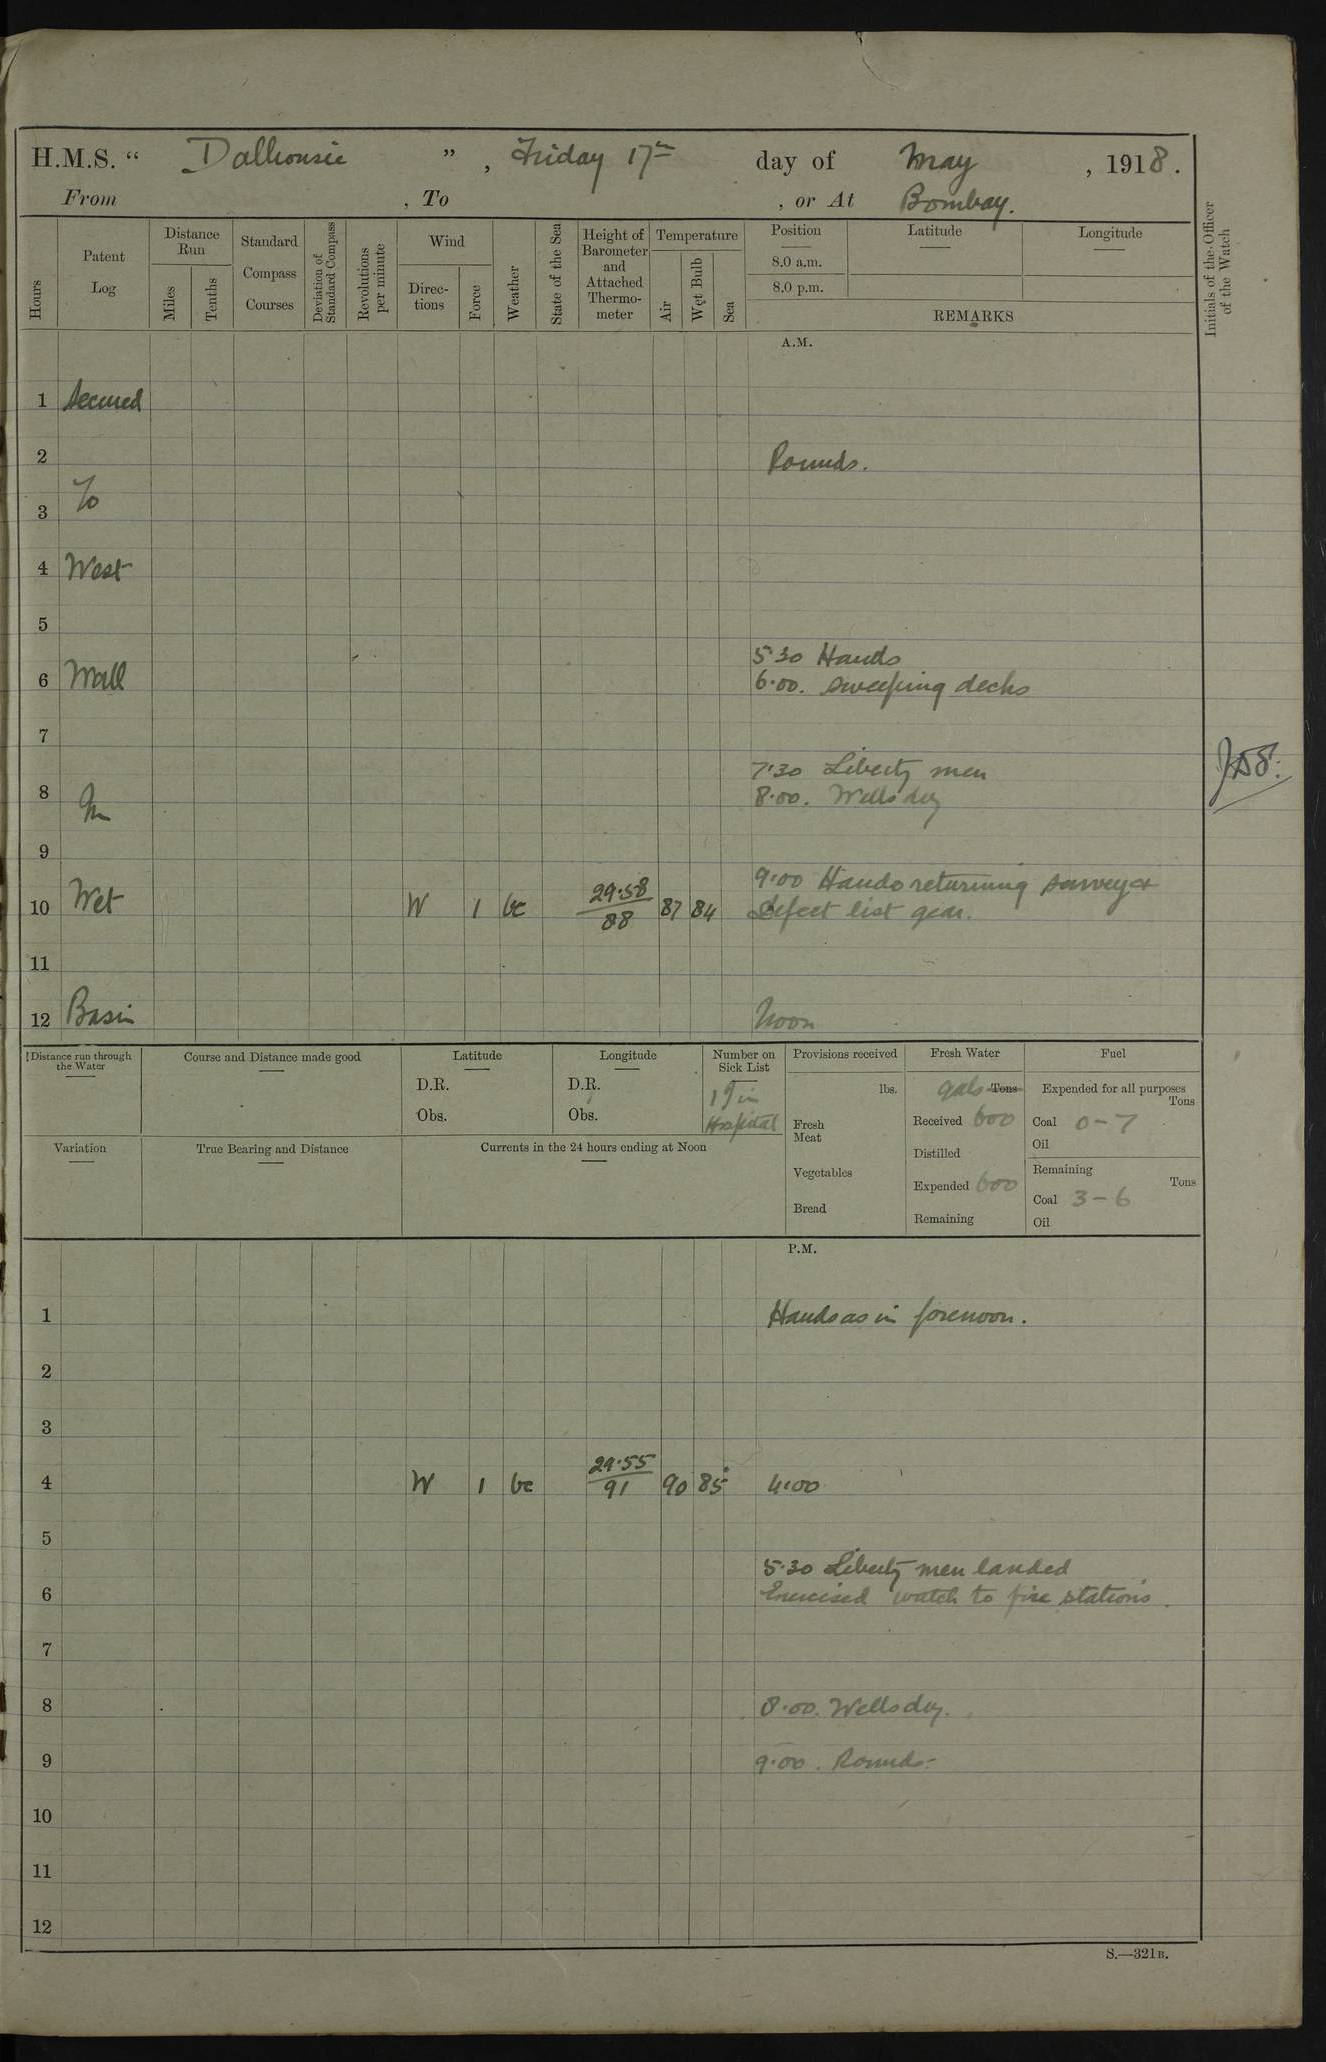 H.M.S. " Dalhousie " , Friday 17th day of May , 1918.
From , To , or At Bombay.
Hours
Patent Log
Distance Run
Miles
Tenths
Standard Compass Courses
Deviation of Standard Compass
Revolutions per minute
Wind
Direc-tions
Force
Weather
State of the Sea
Height of Barometer and Attached Thermo-meter
Temperature
Air
Wet Bulb
Sea
Position
8.0 a.m.
8.0 p.m.
Latitude
Longitude
REMARKS
Initials of the Officer of the Watch
A.M.
1 Secured
2 Rounds.
3 To
4 West
5
5.30 Hands
6 Wall 6.00. Sweeping decks
7
7.30 Liberty men
8 In 8.00. Wells dry
9
9.00 Hands returning survey &
10 Wet W 1 bc 29.58/88 87 84 Defect list gear.
11
12 Basin Noon
Distance run through the Water
Course and Distance made good
Latitude
D.R.
Obs.
Longitude
D.R.
Obs.
Number on Sick List
1 in Hospital
Provisions received
lbs.
Fresh Meat
Vegetables
Bread
Fresh Water
gals Tons
Received 600
Distilled
Expended 600
Remaining
Fuel
Expended for all purposes
Tons
Coal 0-7
Oil
Remaining
Tons
Coal 3-6
Oil
Variation
True Bearing and Distance
Currents in the 24 hours ending at Noon
P.M.
1 Hands as in forenoon.
2
3
4 W 1 bc 29.55/91 90 85 4.00
5
5.30 Liberty men landed
6 Exercised watch to fire stations.
7
8 8.00. Wells dry.
9 9.00. Rounds.
10
11
12
S.—321B.